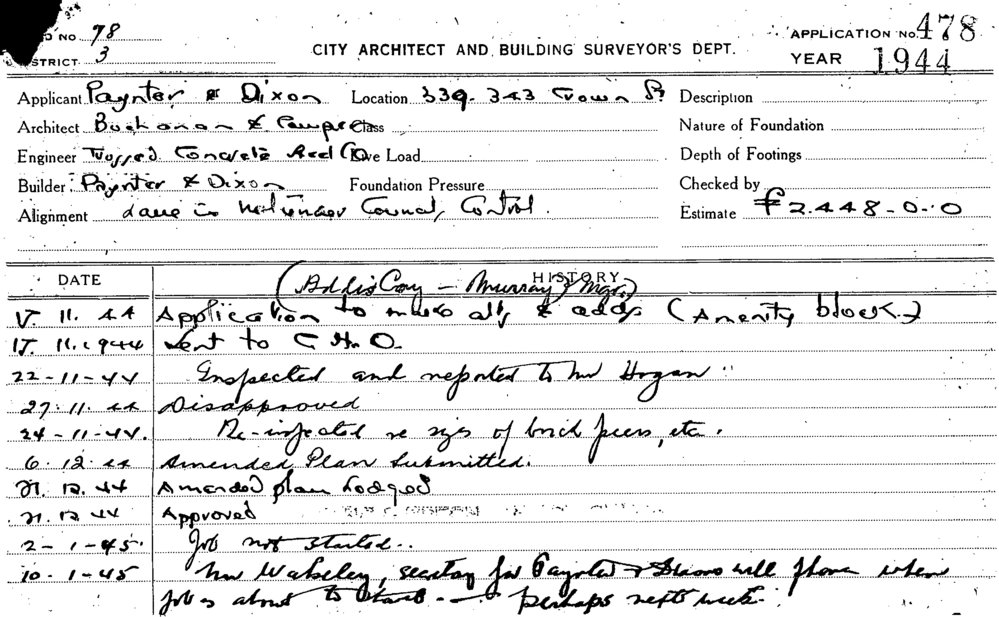 NO 78
STRICT 3
CITY ARCHITECT AND BUILDING SURVEYOR'S DEPT.
APPLICATION No. 478
YEAR 1944
Applicant Paynter & Dixon Location 339. 343 Crown St Description
Architect Buchanan & Class Nature of Foundation
Engineer Trussed Concrete Steel Co Live Load Depth of Footings
Builder Paynter & Dixon Foundation Pressure Checked by
Alignment Lane is Council Control. Estimate £2.448-0-0
DATE HISTORY
(Addis Coy - Murray, Mgr.)
17. 11. 44 Application to make alts & adds (Amenity block.)
17. 11. 1944 Sent to C.H.O.
22-11-44 Inspected and reported to Mr Hogan
27. 11. 44 Disapproved
24-11-44. Re-inspected re sizes of brick piers, etc.
6. 12. 44 Amended Plan Submitted.
21. 12. 44 Amended plan Lodged
21. 12. 44 Approved
2-1-45. Job not started..
10.1-45 Mr Wakeley, secretary for Paynter & Dixon will phone when
job is about to start - perhaps next week.